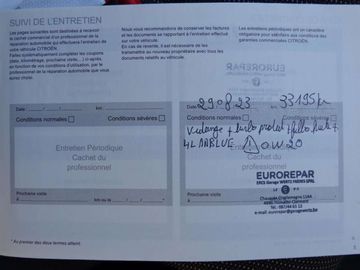 SUIVI DE L'ENTRETIEN
Les pages suivantes sont destinées à recevoir
le cachet commercial d'un professionnel de la
réparation automobile qui effectuera l'entretien de
votre véhicule CITROËN.
Faites systématiquement compléter les coupons
(date, kilométrage, prochaine visite,...) si ce après,
en fonction de vos conditions d'utilisation, par le
professionnel de la réparation automobile que vous
aurez choisi.
Nous vous recommandons de conserver les factures
et les documents se rapportant à l'entretien effectué
sur votre véhicule.
En cas de revente, il est nécessaire de les
transmettre au nouveau propriétaire avec tous les
documents relatifs au véhicule.
Les entretiens périodiques ont un caractère
obligatoire pour satisfaire aux conditions des
garanties commerciales CITROËN.
Date
km
Conditions normales
Conditions sévères
Entretien Périodique
Cachet du
professionnel
Prochaine visite
À
km ou le
Date 29 08 23
33195
Conditions normales
Conditions sévères
Vidange +
4L ADBLUE 0W20
Prochaine visite
EUROREPAR
* Au premier des deux termes atteint.